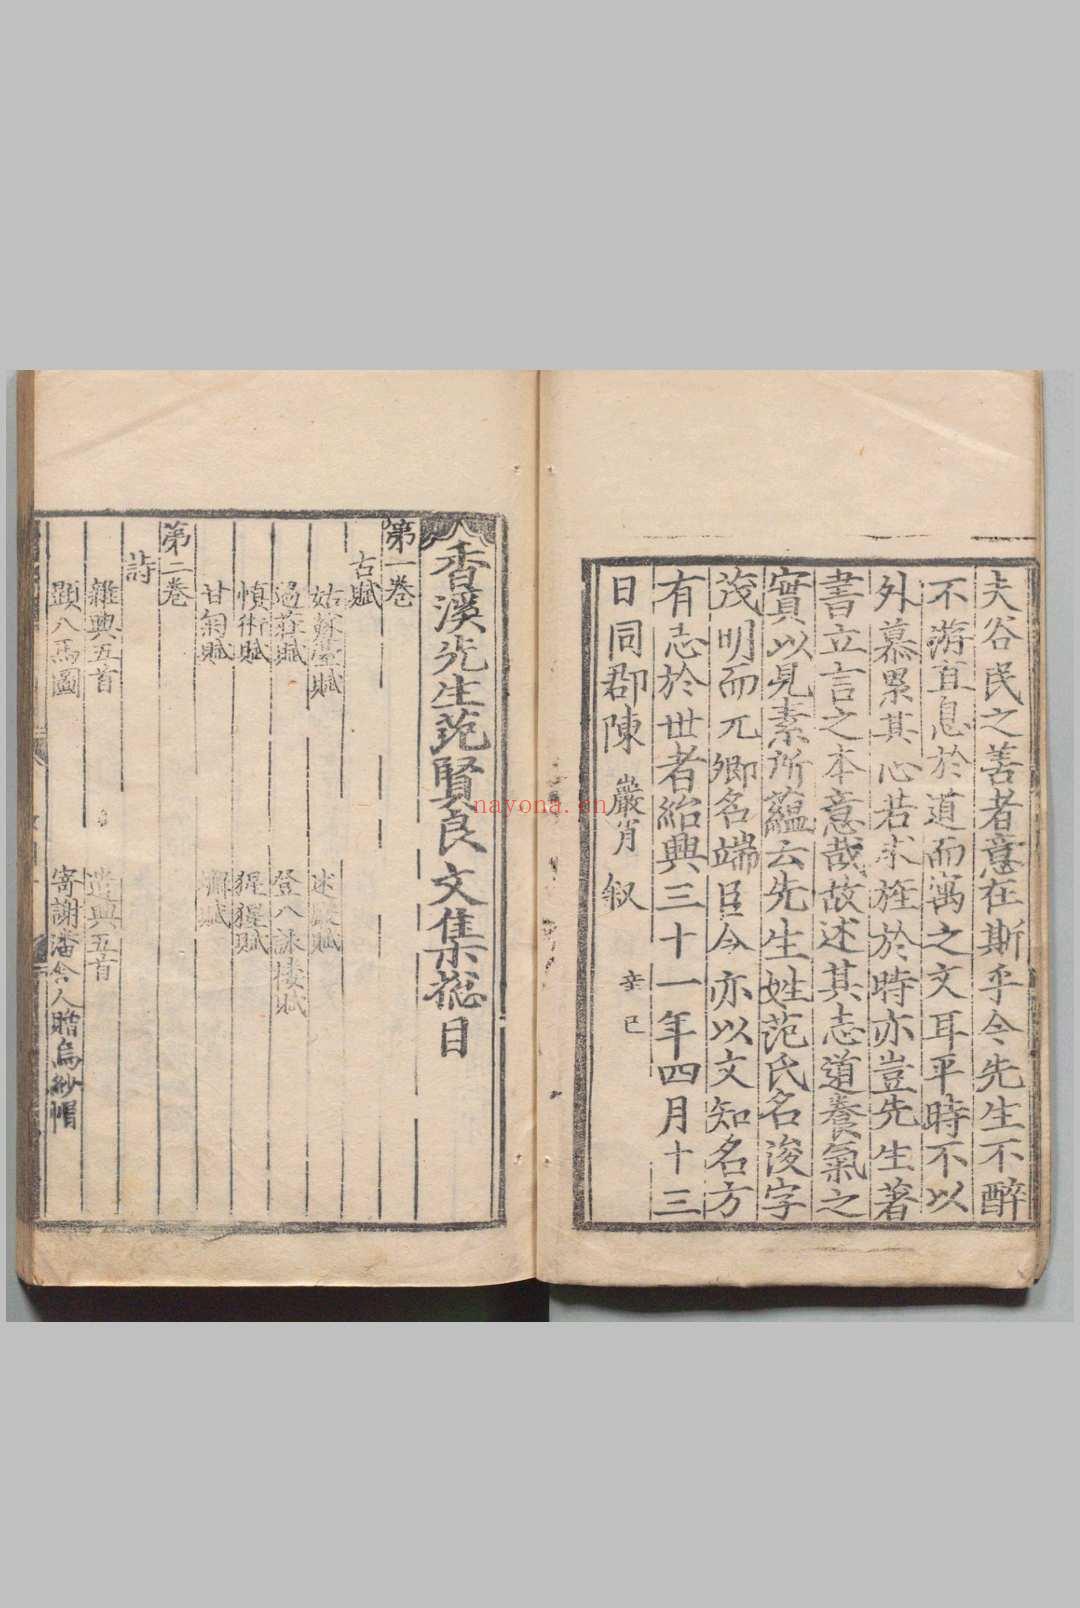 夫谷民之善者意在斯乎今先生不醉
不游直息於道而寓之文耳平時不以
外慕累其心若求旌於時亦豈先生著
書立言之本意哉故述其志道養氣之
實以見素所蘊云先生姓范氏名浚字
茂明而元卿名端臣今亦以文知名方
有志於世者紹興三十一年四月十三
日同郡陳巖肖叙 辛巳
香溪先生范賢良文集總目
第一卷
古賦
姑蘇臺賦
過莊賦 登八詠樓賦
慎術賦 猩猩賦
甘菊賦
第二卷
詩
雜興五首 遣興五首
題八馬圖 寄謝潘令人贈烏紗帽
nayona.cn